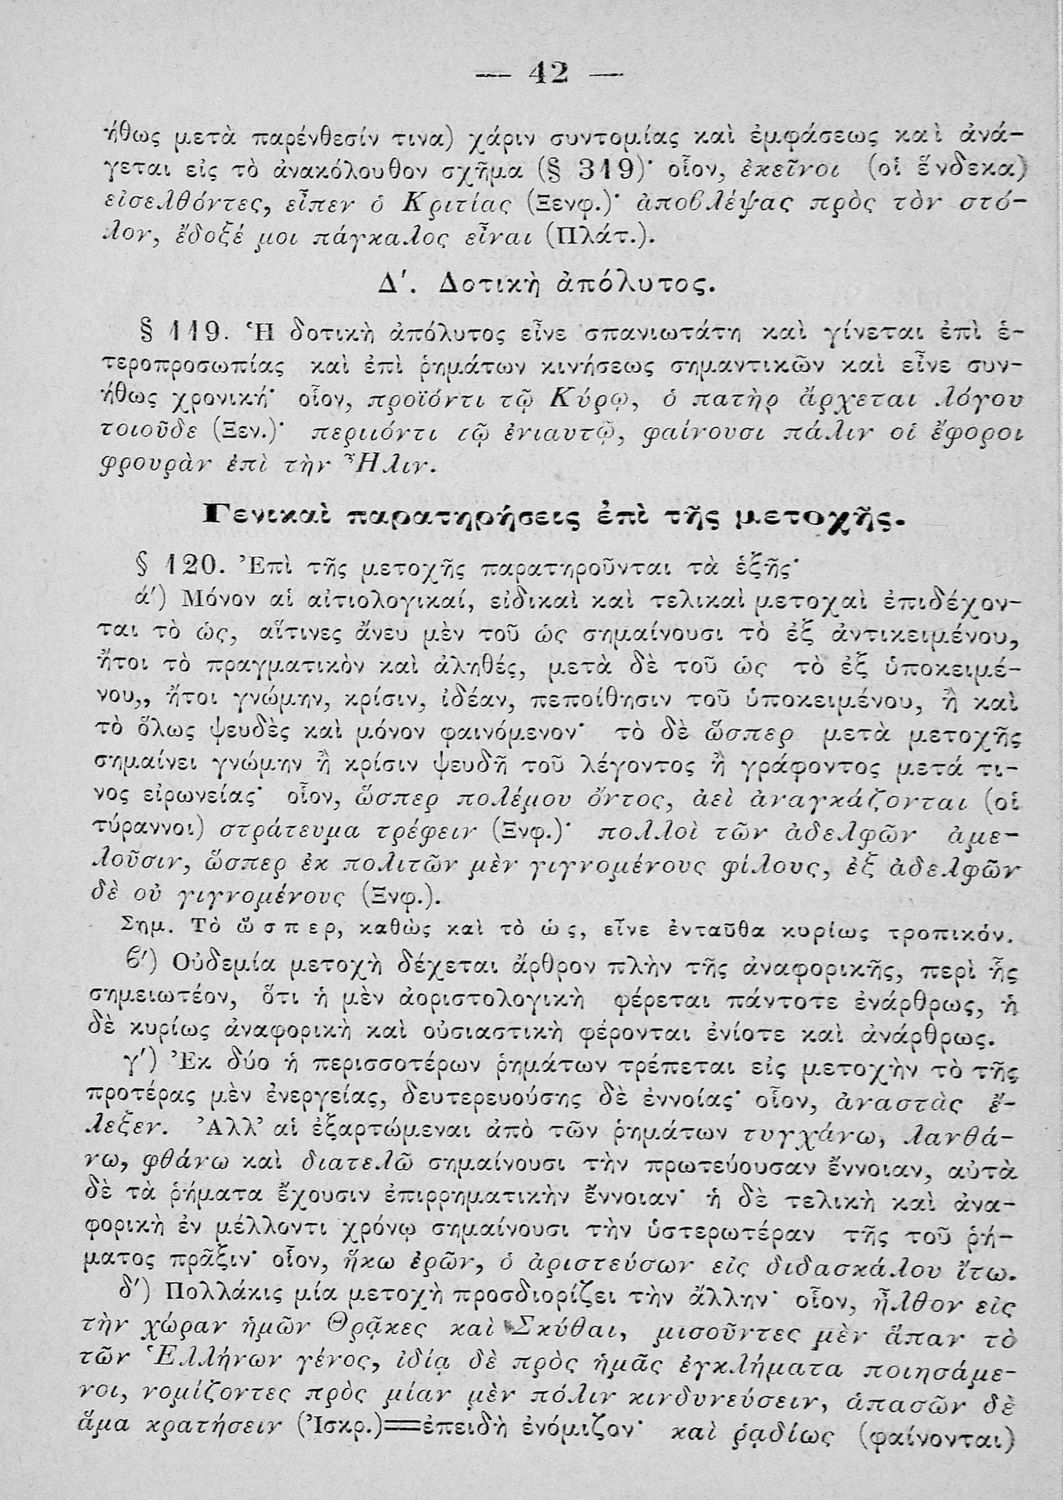 — 42 —
ήθως μετὰ παρένθεσίν τινα) χάριν συντομίας καὶ ἐμφάσεως καὶ ἀνά-
γεται εἰς τὸ ἀνακόλουθον σχῆμα (§ 319)· οἷον, ἐκεῖνοι (οἱ ἕνδεκα)
εἰσελθόντες, εἶπεν ὁ Κριτίας (Ξενφ.)· ἀποβλέψας πρὸς τὸν στό-
λον, ἔδοξέ μοι πάγκαλος εἶναι (Πλάτ.).
Δ΄. Δοτικὴ ἀπόλυτος.
§ 119. Ἡ δοτικὴ ἀπόλυτος εἶνε σπανιωτάτη καὶ γίνεται ἐπὶ ἑ-
τεροπροσωπίας καὶ ἐπὶ ῥημάτων κινήσεως σημαντικῶν καὶ εἶνε συν-
ήθως χρονική· οἷον, προϊόντι τῷ Κύρῳ, ὁ πατὴρ ἄρχεται λόγου
τοιοῦδε (Ξεν.)· περιιόντι τῷ ἐνιαυτῷ, φαίνουσι πάλιν οἱ ἔφοροι
φρουρὰν ἐπὶ τὴν Ἦλιν.
Γενικαὶ παρατηρήσεις ἐπὶ τῆς μετοχῆς.
§ 120. Ἐπὶ τῆς μετοχῆς παρατηροῦνται τὰ ἑξῆς·
ά΄) Μόνον αἱ αἰτιολογικαί, εἰδικαὶ καὶ τελικαὶ μετοχαὶ ἐπιδέχον-
ται τὸ ὡς, αἵτινες ἄνευ μὲν τοῦ ὡς σημαίνουσι τὸ ἐξ ἀντικειμένου,
ἤτοι τὸ πραγματικὸν καὶ ἀληθές, μετὰ δὲ τοῦ ὡς τὸ ἐξ ὑποκειμέ-
νου,, ἤτοι γνώμην, κρίσιν, ἰδέαν, πεποίθησιν τοῦ ὑποκειμένου, ἢ καὶ
τὸ ὅλως ψευδὲς καὶ μόνον φαινόμενον· τὸ δὲ ὥσπερ μετὰ μετοχῆς
σημαίνει γνώμην ἢ κρίσιν ψευδῆ τοῦ λέγοντος ἢ γράφοντος μετά τι-
νος εἰρωνείας· οἷον, ὥσπερ πολέμου ὄντος, ἀεὶ ἀναγκάζονται (οἱ
τύραννοι) στράτευμα τρέφειν (Ξνφ.)· πολλοὶ τῶν ἀδελφῶν ἀμε-
λοῦσιν, ὥσπερ ἐκ πολιτῶν μὲν γιγνομένους φίλους, ἐξ ἀδελφῶν
δὲ οὐ γιγνομένους (Ξνφ.).
Σημ. Τὸ ὥσπερ, καθὼς καὶ τὸ ὡς, εἶνε ἐνταῦθα κυρίως τροπικόν.
ϐ΄) Οὐδεμία μετοχὴ δέχεται ἄρθρον πλὴν τῆς ἀναφορικῆς, περὶ ἧς
σημειωτέον, ὅτι ἡ μὲν ἀοριστολογικὴ φέρεται πάντοτε ἐνάρθρως, ἡ
δὲ κυρίως ἀναφορικὴ καὶ οὐσιαστικὴ φέρονται ἐνίοτε καὶ ἀνάρθρως.
γ΄) Ἐκ δύο ἢ περισσοτέρων ῥημάτων τρέπεται εἰς μετοχὴν τὸ τῆς
προτέρας μὲν ἐνεργείας, δευτερευούσης δὲ ἐννοίας· οἷον, ἀναστὰς ἔ-
λεξεν. Ἀλλ' αἱ ἐξαρτώμεναι ἀπὸ τῶν ῥημάτων τυγχάνω, λανθά-
νω, φθάνω καὶ διατελῶ σημαίνουσι τὴν πρωτεύουσαν ἔννοιαν, αὐτὰ
δὲ τὰ ῥήματα ἔχουσιν ἐπιρρηματικὴν ἔννοιαν· ἡ δὲ τελικὴ καὶ ἀνα-
φορικὴ ἐν μέλλοντι χρόνῳ σημαίνουσι τὴν ὑστερωτέραν τῆς τοῦ ῥή-
ματος πρᾶξιν· οἷον, ἥκω ἐρῶν, ὁ ἀριστεύσων εἰς διδασκάλου ἴτω.
δ΄) Πολλάκις μία μετοχὴ προσδιορίζει τὴν ἄλλην· οἷον, ἦλθον εἰς
τὴν χώραν ἡμῶν Θρᾷκες καὶ Σκύθαι, μισοῦντες μὲν ἅπαν τὸ
τῶν Ἑλλήνων γένος, ἰδίᾳ δὲ πρὸς ἡμᾶς ἐγκλήματα ποιησάμε-
νοι, νομίζοντες πρὸς μίαν μὲν πόλιν κινδυνεύσειν, ἁπασῶν δὲ
ἅμα κρατήσειν (Ἰσκρ.)=ἐπειδὴ ἐνόμιζον· καὶ ῥᾳδίως (φαίνονται)